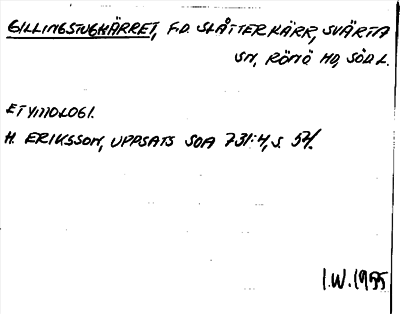 GILLINGSTUGKÄRRET, F.D. SLÅTTERKÄRR, SVÄRTA
SN, RÖNÖ HD, SÖDL.
ETYMOLOGI.
H. ERIKSSON, UPPSATS SOA 731:4, S. 57.
I.W. 1955